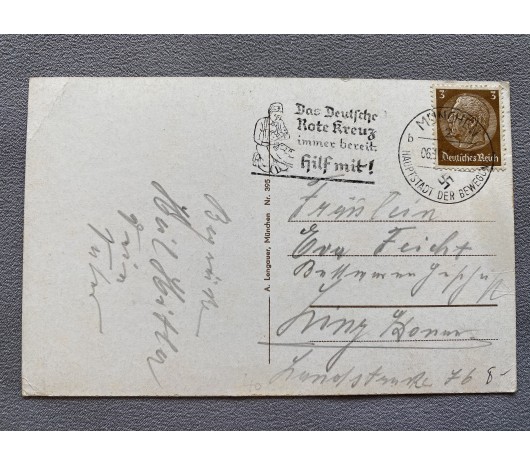 Das Deutsche
Rote Kreuz
immer bereit:
Hilf mit!
3 3
Deutsches Reich
MÜNCHEN
b
HAUPTSTADT DER BEWEGUNG
A. Lengauer, München Nr. 395
Heil Hitler
Fräulein
Eva Feicht
Linz Donau
Landstraße 76
8-